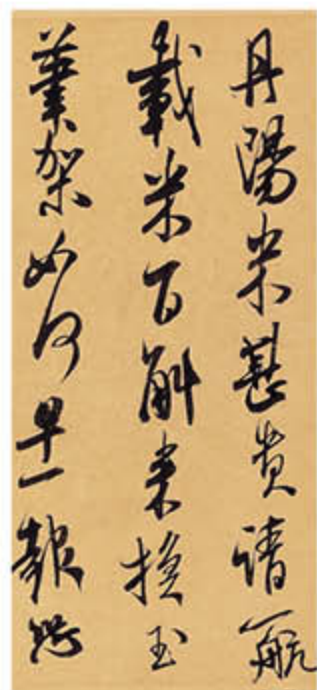 丹陽米甚貴請一航
載米百斛来換玉
筆架如何早一報恐